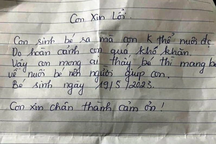 Con Xin Lỗi.
Con sinh bé ra mà con k thể nuôi dc
Do hoàn cảnh con quá khó khăn.
Vậy con mong ai thấy bé thì mang bé
về nuôi bé nên người giúp con.
Bé sinh ngày 19/5/2023.
Con xin chân thành cảm ơn!